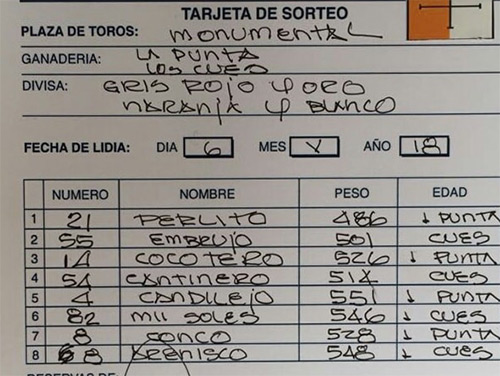 TARJETA DE SORTEO
PLAZA DE TOROS: MONUMENTAL
GANADERIA: LA PUNTA
LOS CUES
DIVISA: GRIS ROJO Y ORO
NARANJA Y BLANCO
FECHA DE LIDIA: DIA 6 MES V AÑO 18
NUMERO NOMBRE PESO EDAD
1 21 PERLITO 486 ↓ PUNTA
2 55 EMBRUJO 501 CUES
3 14 COCOTERO 526 ↓ PUNTA
4 54 CANTINERO 514 CUES
5 4 CANDILEJO 551 ↓ PUNTA
6 82 MIL SOLES 546 ↓ CUES
7 8 CONCO 528 ↓ PUNTA
8 68 ARENISCO 548 ↓ CUES
RESERVAS DE: